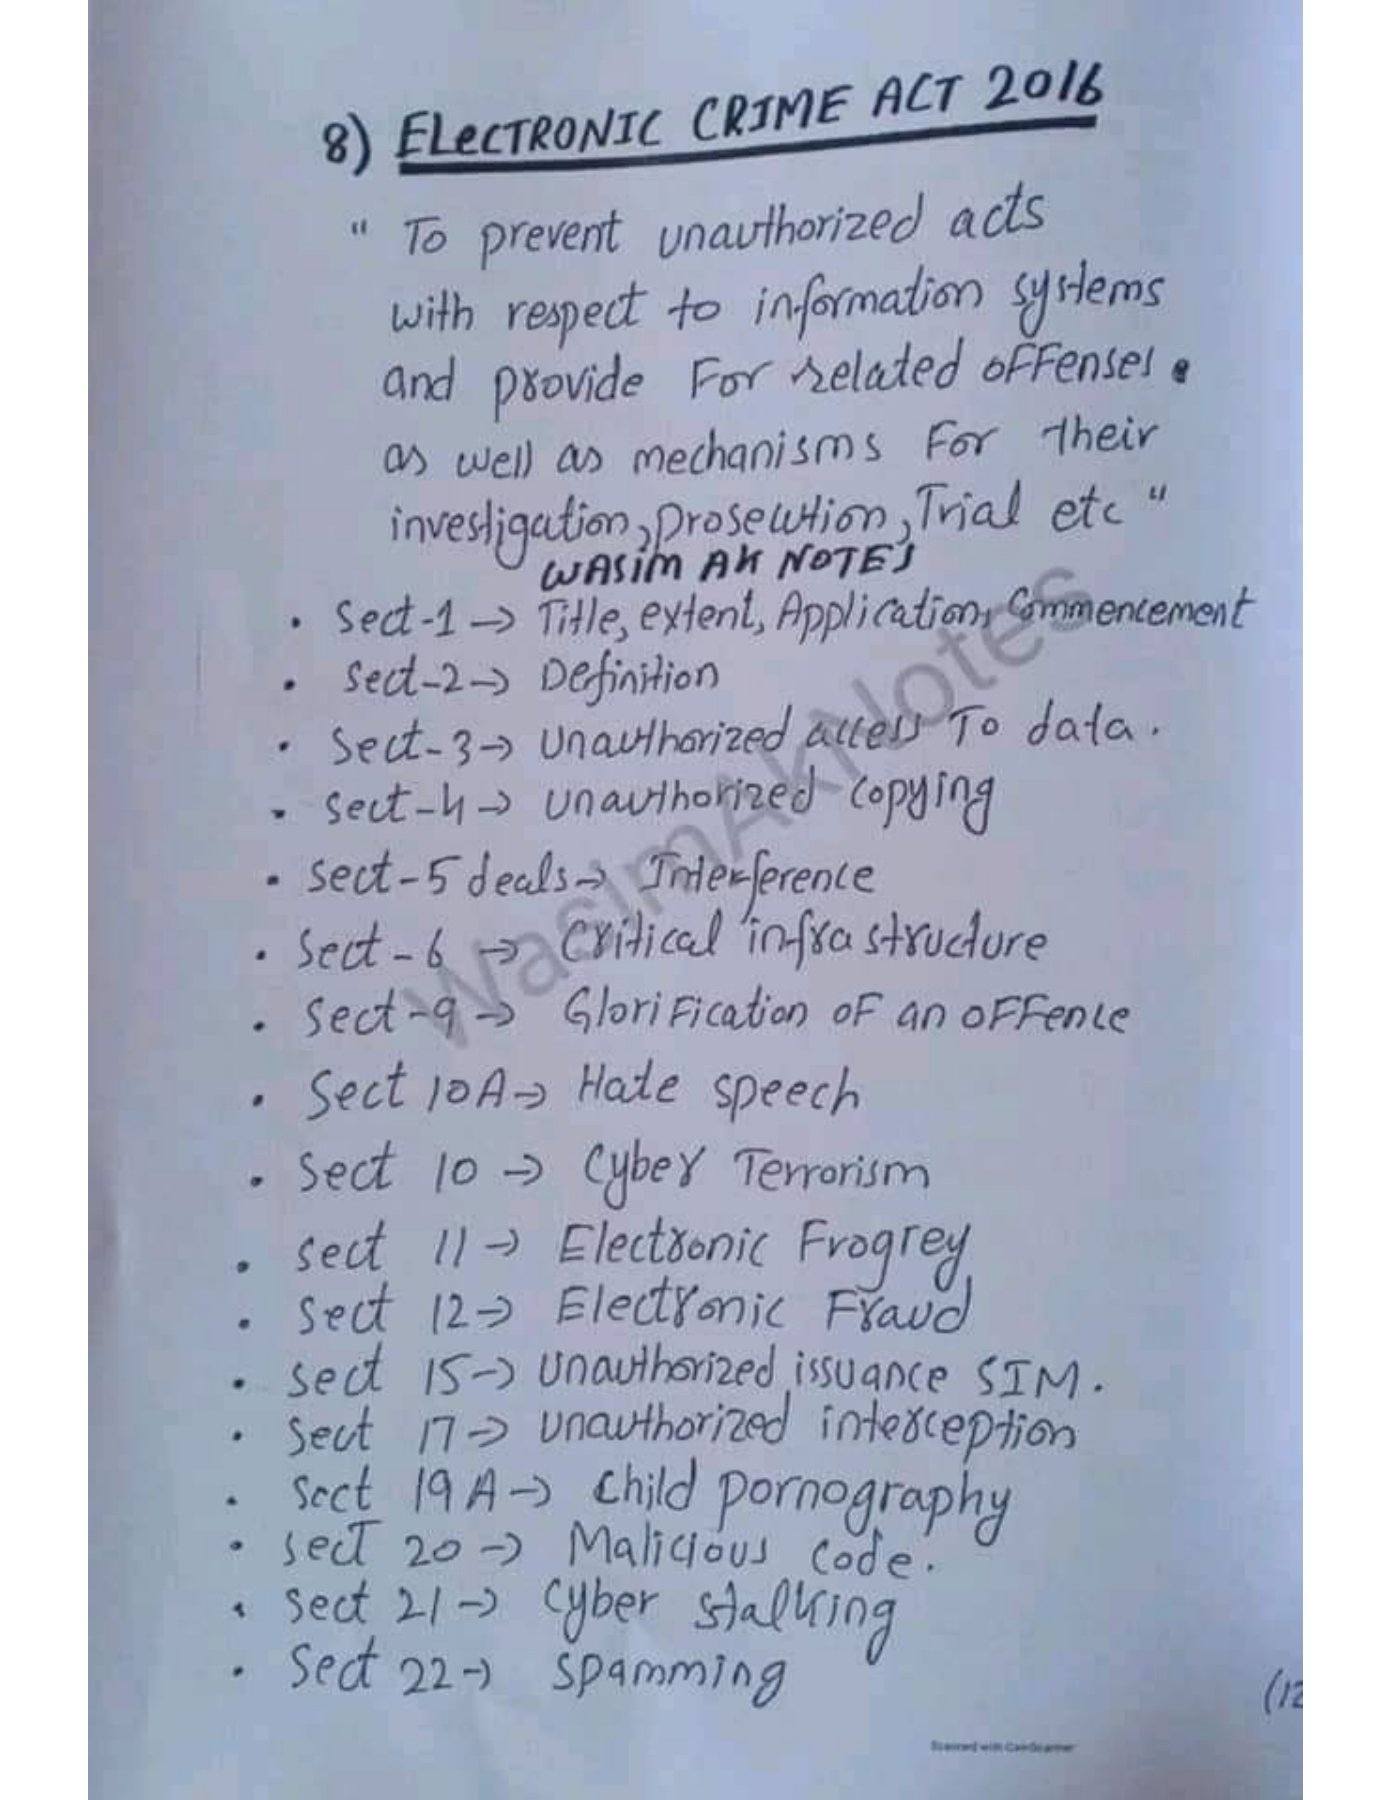 8) ELECTRONIC CRIME ACT 2016
" To prevent unauthorized acts
with respect to information systems
and provide For related offenses.
as well as mechanisms For their
investigation, prosecution, Trial etc "
WASIM AK NOTES
• Sect-1 → Title, extent, Application, Commencement
• Sect-2 → Definition
• Sect-3 → Unauthorized access To data.
• Sect-4 → unauthorized copying
• Sect-5 deals → Interference
• Sect-6 → Critical infrastructure
• Sect-9 → Glorification of an offence
• Sect 10A → Hate speech
• Sect 10 → Cyber Terrorism
• Sect 11 → Electronic Frogrey
• Sect 12 → Electronic Fraud
• Sect 15 → Unauthorized issuance SIM.
• Sect 17 → unauthorized interception
• Sect 19A → Child pornography
• Sect 20 → Malicious code.
• Sect 21 → Cyber stalking
• Sect 22 → Spamming
(12
WasimAkNotes
Scanned with CamScanner